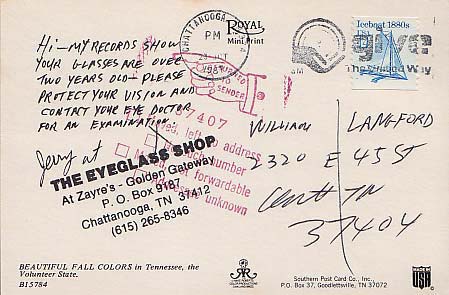 Hi-MY RECORDS SHOW
YOUR GLASSES ARE OVER
TWO YEARS OLD-PLEASE
PROTECT YOUR VISION AND
CONTACT YOUR EYE DOCTOR
FOR AN EXAMINATION.
Jerry at
THE EYEGLASS SHOP
At Zayre's - Golden Gateway
P. O. Box 9187
Chattanooga, TN 37412
(615) 265-8346
BEAUTIFUL FALL COLORS in Tennessee, the
Volunteer State.
B15784
ROYAL
Mini Print
CHATTANOOGA
PM
RETURNED
TO
SENDER
37407
left to address
such number
not forwardable
unknown
Iceboat 1880s
give
The United Way
WILLIAM LANGFORD
2320 E 45 ST
Chatt TN
37404
Southern Post Card Co., Inc.,
P.O. Box 37, Goodlettsville, TN 37072
MADE IN
USA